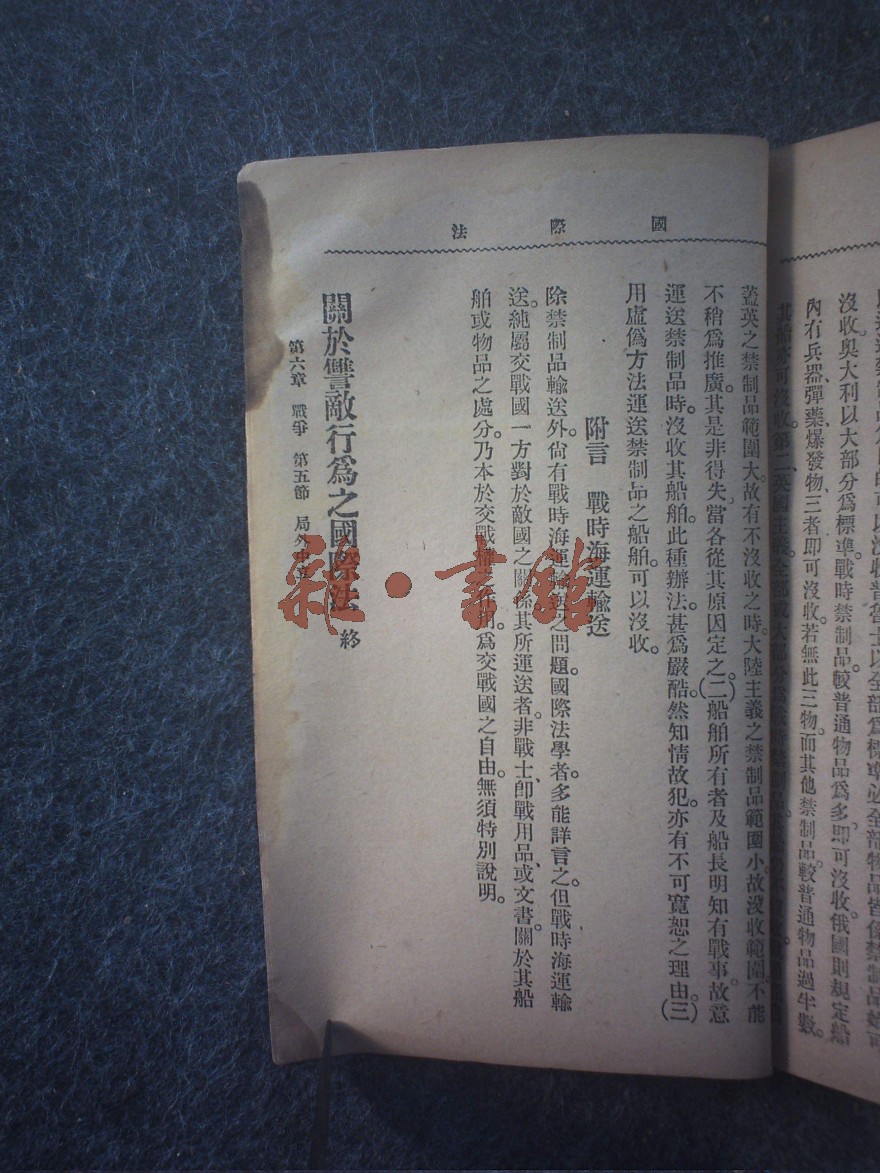 國際法
沒收奧大利以大部分爲標準。戰時禁制品較普通物品爲多即可沒收。俄國則規定船
內有兵器彈藥爆發物三者即可沒收若無此三物。而其他禁制品較普通物品過半數。
其船亦可沒收。第二、英國主義。
蓋英之禁制品範圍大。故有不沒收之時。大陸主義之禁制品範圍小。故沒收範圍不能
不稍爲推廣。其是非得失。當各從其原因定之。(二)船舶所有者及船長明知有戰事。故意
運送禁制品時。沒收其船舶。此種辦法。甚爲嚴酷。然知情故犯。亦有不可寬恕之理由。(三)
用虛僞方法運送禁制品之船舶。可以沒收。
附言　戰時海運輸送
除禁制品輸送外。尙有戰時海運輸送之問題。國際法學者。多能詳言之。但戰時海運輸
送。純屬交戰國一方對於敵國之關係。其所運送者。非戰士、卽戰用品、或文書。關於其船
舶或物品之處分。乃本於交戰權之作用。爲交戰國之自由。無須特別說明。
關於讐敵行爲之國際法 終
第六章　戰爭　第五節　局外中立
雜·書館